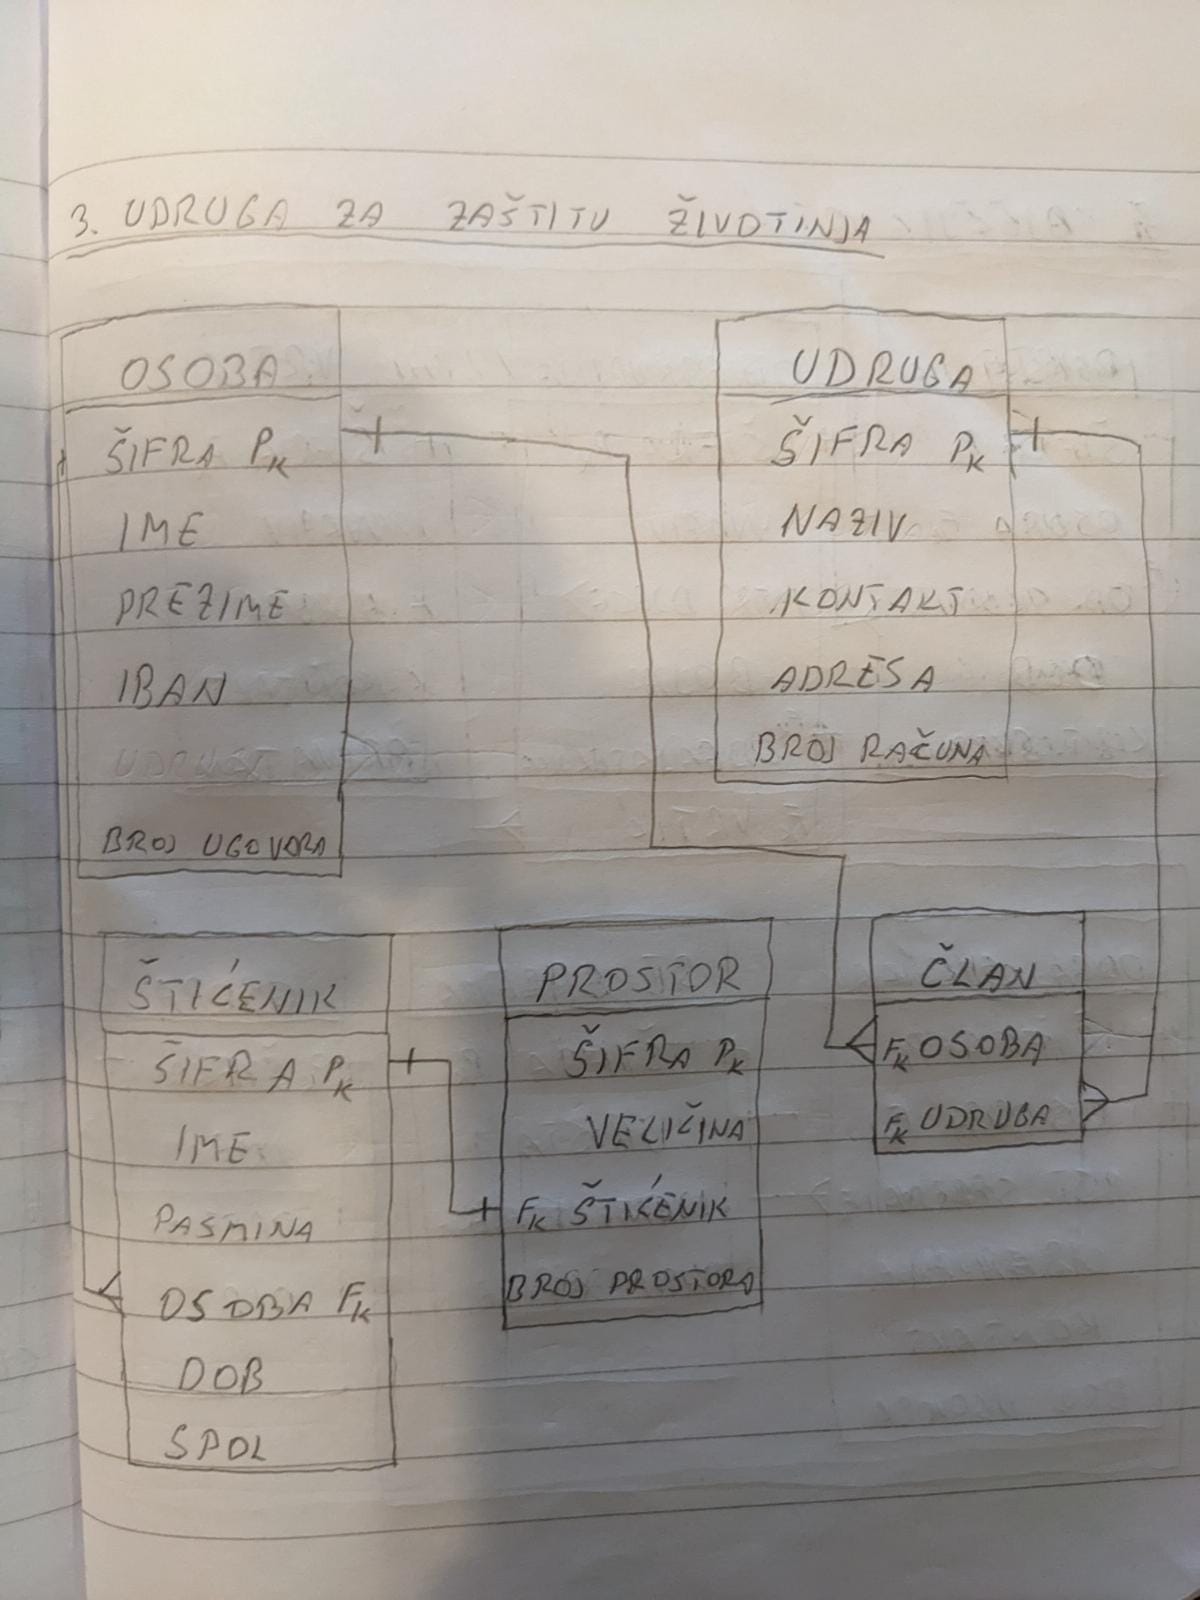 3. UDRUGA ZA ZAŠTITU ŽIVOTINJA
OSOBA
ŠIFRA PK
IME
PREZIME
IBAN
BROJ UGOVORA
UDRUGA
ŠIFRA PK
NAZIV
KONTAKT
ADRESA
BROJ RAČUNA
ŠTIĆENIK
ŠIFRA PK
IME
PASMINA
OSOBA FK
DOB
SPOL
PROSTOR
ŠIFRA PK
VELIČINA
FK ŠTIĆENIK
BROJ PROSTORA
ČLAN
FK OSOBA
FK UDRUGA